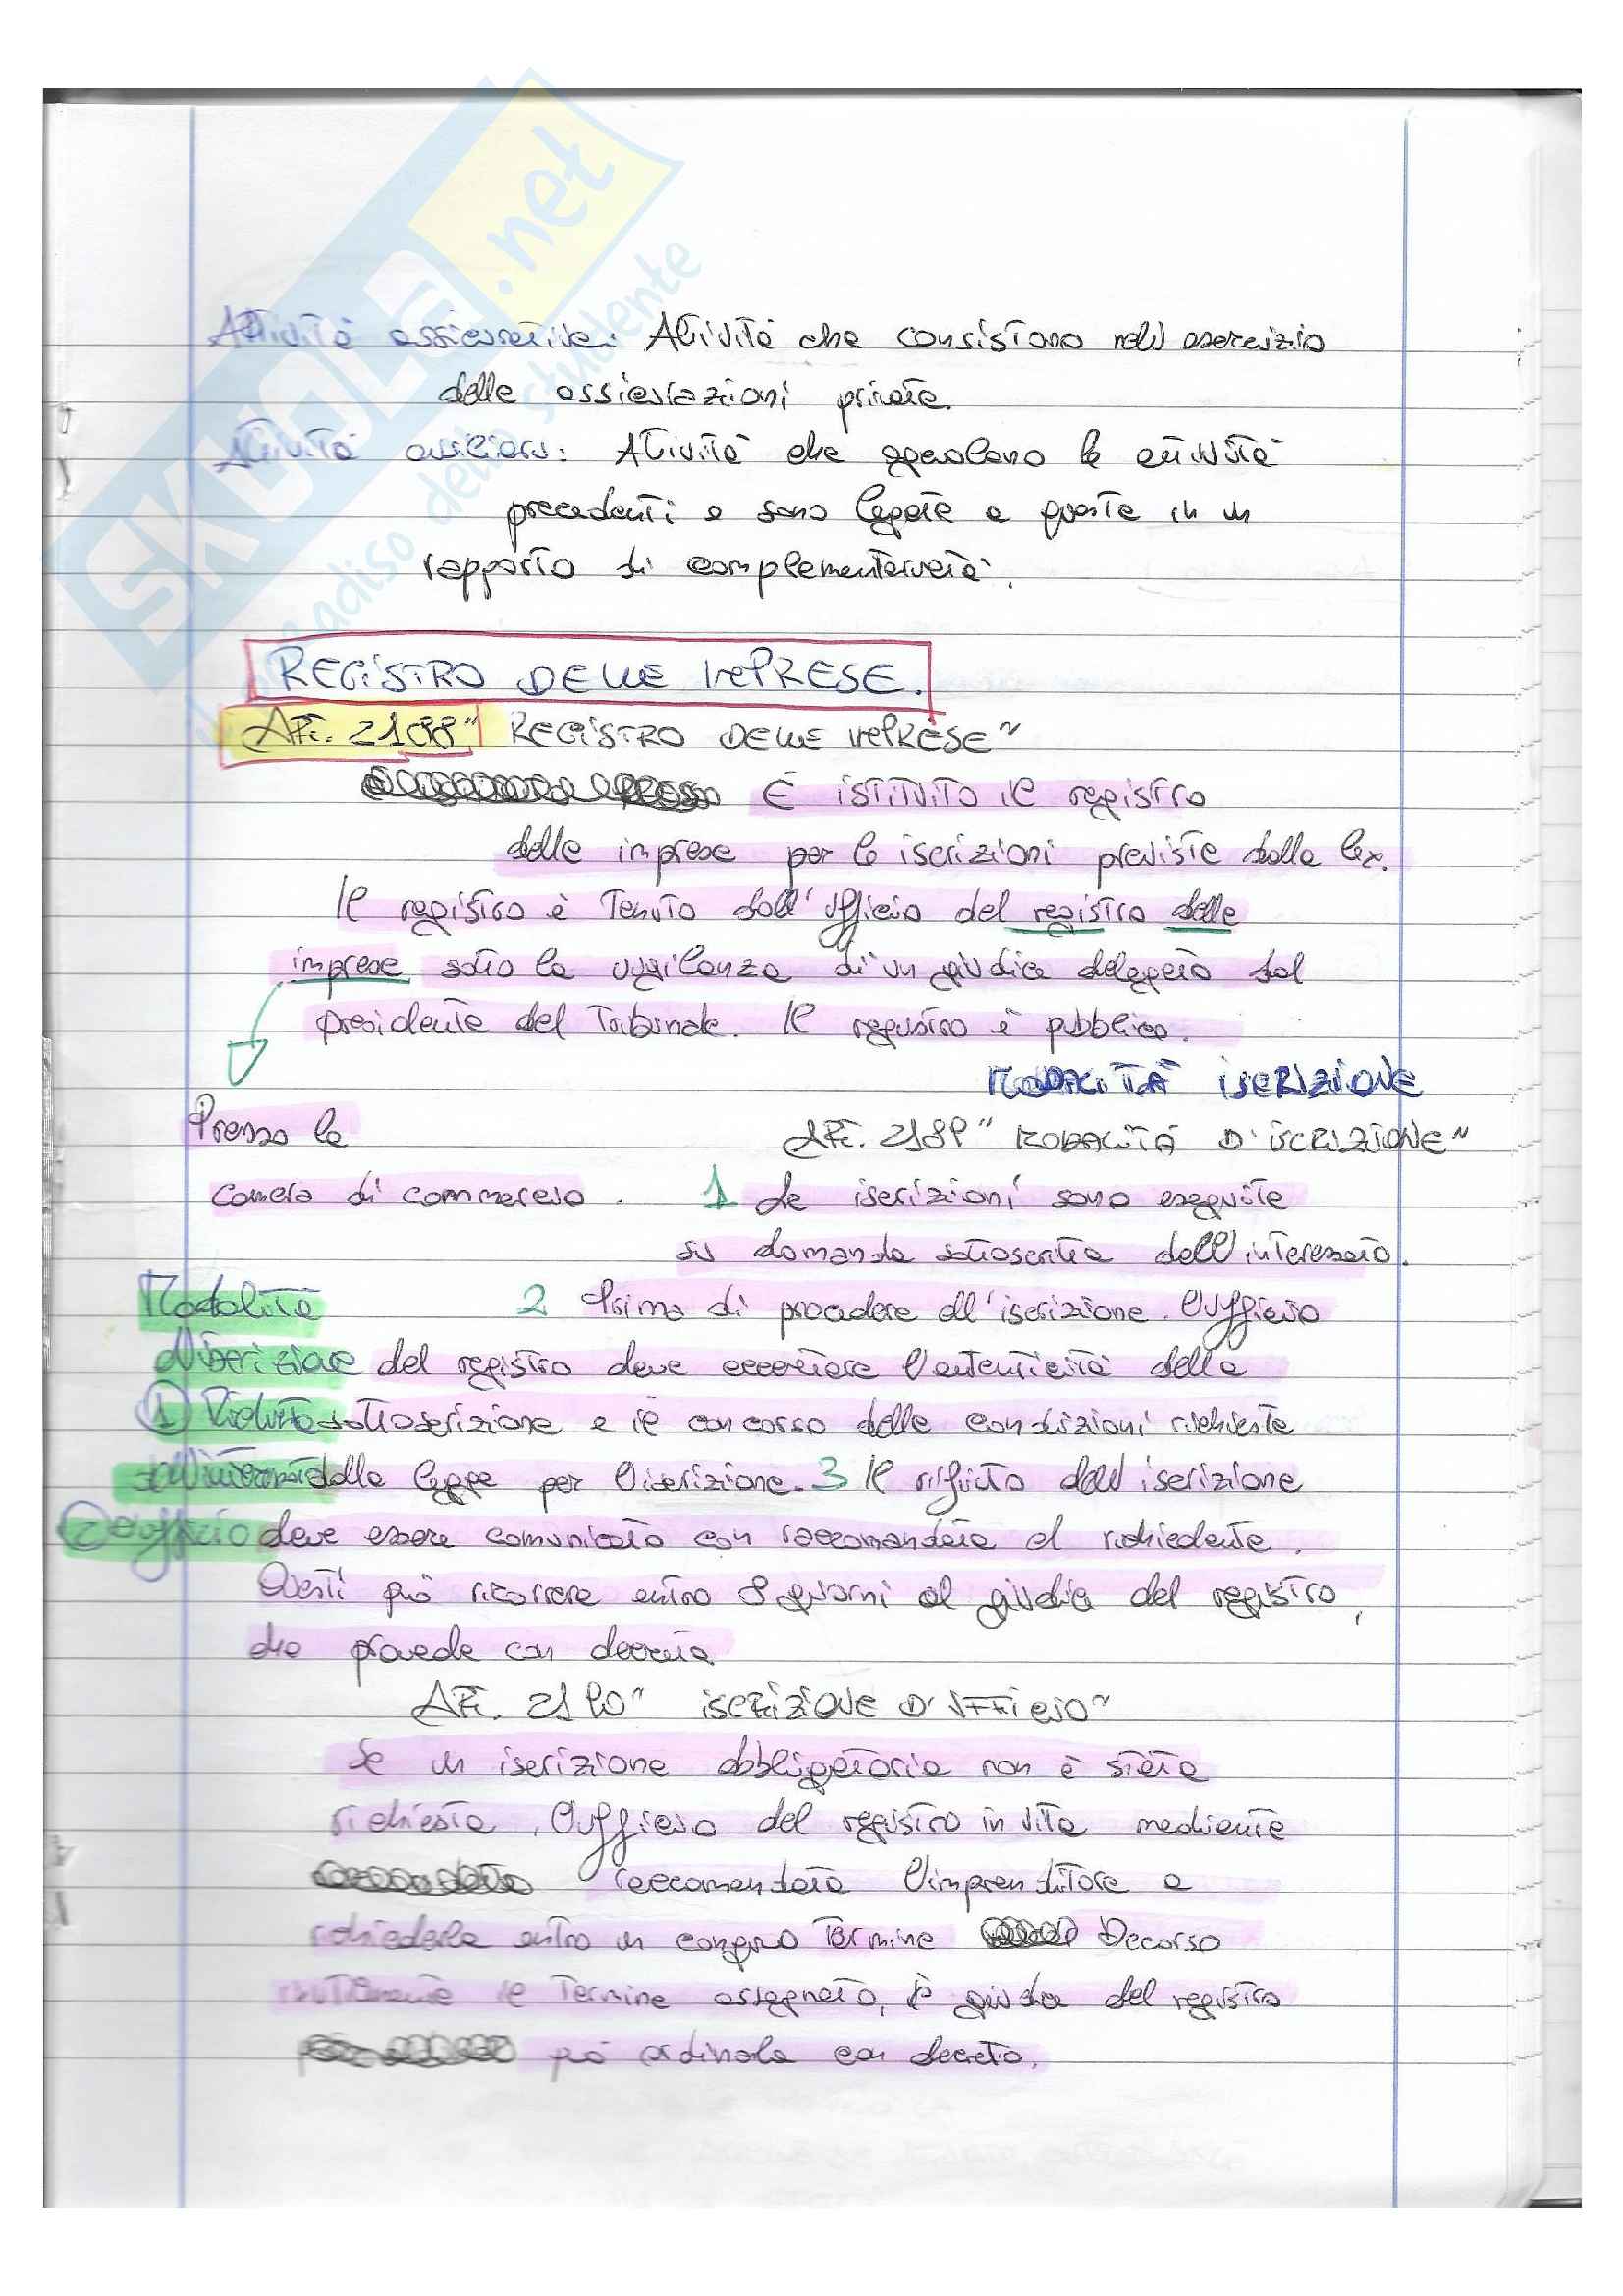 SKUOLA.net
paradiso dello studente
Attività assicurative: Attività che consistono nell'esercizio
delle assicurazioni private.
Attività ausiliari: Attività che agevolano le attività
precedenti e sono legate a queste in un
rapporto di complementarietà.
REGISTRO DELLE IMPRESE.
Art. 2188" REGISTRO DELLE IMPRESE"
È istituito il registro
delle imprese per le iscrizioni previste dalla lex.
Il registro è tenuto dall'ufficio del registro delle
imprese sotto la vigilanza di un giudice delegato dal
presidente del Tribunale. Il registro è pubblico.
MODALITÀ ISCRIZIONE
Presso la
Art. 2189" MODALITÀ D'ISCRIZIONE"
camera di commercio.
1 Le iscrizioni sono eseguite
su domanda sottoscritta dell'interessato.
Modalità
2 Prima di procedere all'iscrizione. L'ufficio
d'iscrizione del registro deve accertare l'autenticità della
1 sottoscrizione e il concorso delle condizioni richieste
dalla legge per l'iscrizione. 3 Il rifiuto dell'iscrizione
2 d'ufficio deve essere comunicato con raccomandata al richiedente.
Questi può ricorrere entro 8 giorni al giudice del registro,
che provvede con decreto
Art. 2190" ISCRIZIONE D'UFFICIO"
Se un iscrizione obbligatoria non è stata
richiesta, l'ufficio del registro invita mediante
raccomandata l'imprenditore a
richiederla entro un congruo termine Decorso
inutilmente il termine assegnato, il giudice del registro
può ordinarla con decreto.